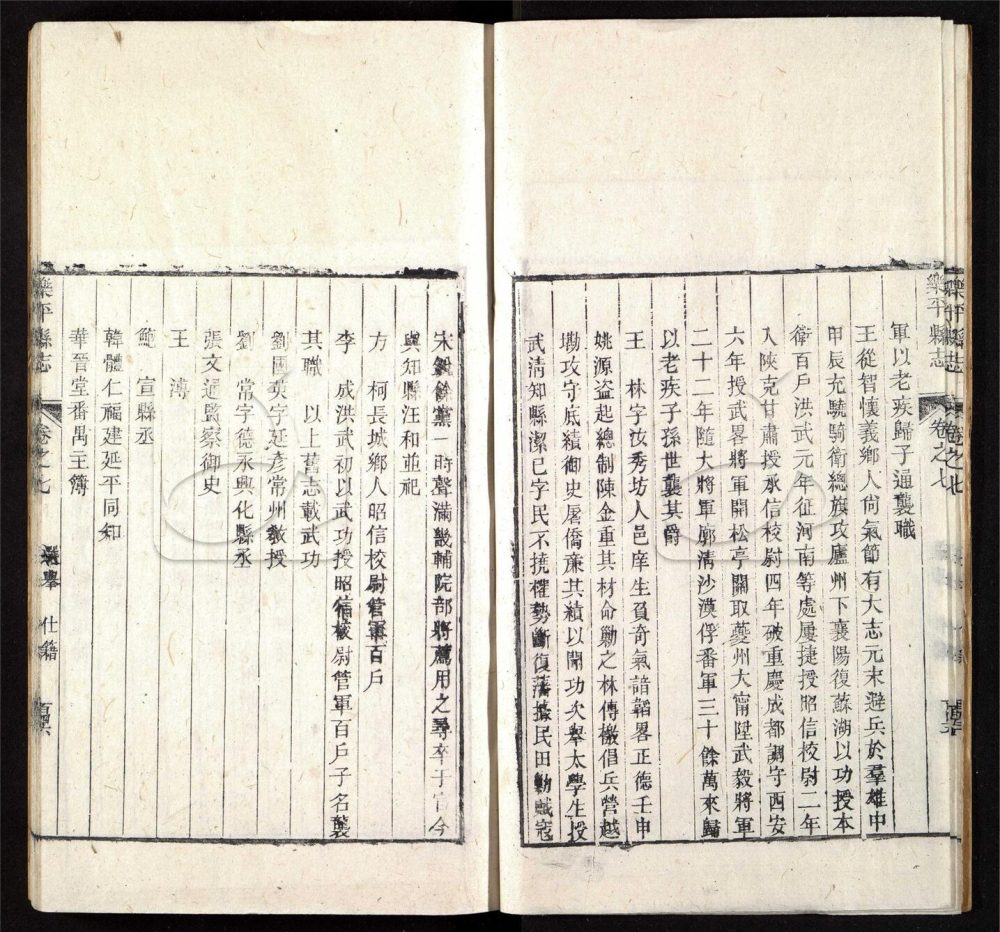 樂平縣志 卷之七
軍以老疾歸子通襲職
王從智懷義鄉人尙氣節有大志元末避兵於羣雄中
甲辰充驍騎衛總旗攻廬州下襄陽復蘇湖以功授本
衛百戶洪武元年征河南等處屢捷授昭信校尉二年
入陝克甘肅授承信校尉四年破重慶成都調守西安
六年授武畧將軍開松亭關取夔州大甯陞武毅將軍
二十二年隨大將軍廓清沙漠俘番軍三十餘萬來歸
以老疾子孫世襲其爵
王 林字汝秀坊人邑庠生負奇氣諳韜畧正德壬申
姚源盜起總制陳金重其材命勦之林傳檄倡兵營越
塘攻守底績御史屠僑亷其績以聞功次舉太學生授
武清知縣潔已字民不撓權勢斷復藩據民田勦賊寇
宋 餘黨一時聲滿畿輔院部將薦用之尋卒于官今
與知縣汪和並祀
方 柯長城鄉人昭信校尉管軍百戶
李 成洪武初以武功授昭信校尉管軍百戶子名襲
其職 以上舊志載武功
劉國英字延彥常州教授
劉 常字德永興化縣丞
張文通監察御史
王 溥
鮑 宣縣丞
韓體仁福建延平同知
華晉堂番禺主簿
樂平縣志 卷之七 選舉 仕籍